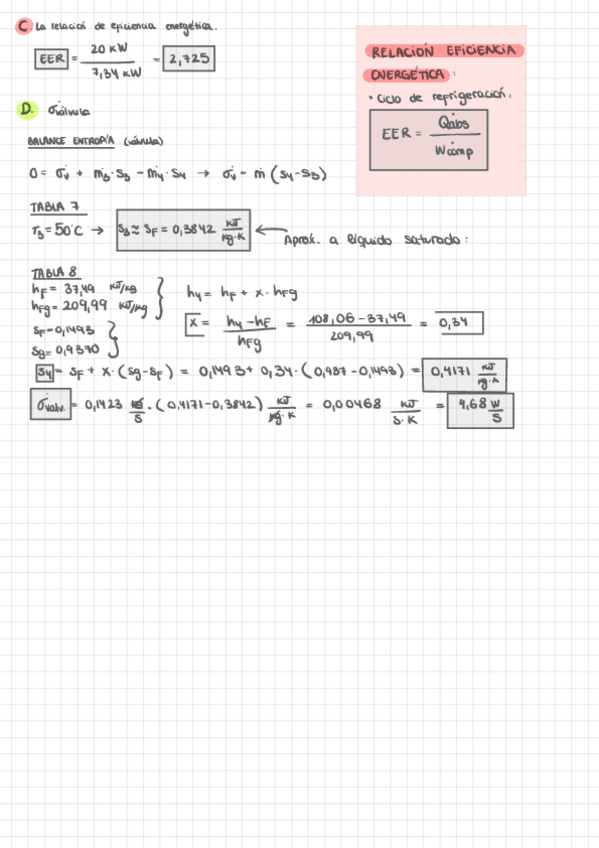 C La relación de eficiencia energética.
EER = 20 KW / 7,34 KW = 2,725
RELACIÓN EFICIENCIA
ENERGÉTICA:
• Ciclo de refrigeración:
EER = Q̇abs / Ẇcomp
D. σ̇válvula
BALANCE ENTROPÍA (válvula)
0 = σ̇v + ṁ3·S3 - ṁ4·S4 → σ̇v - ṁ (S4-S3)
TABLA 7
T3 = 50°C → S3 ≈ SF = 0,3842 KJ/Kg·K ← Aprox. a líquido saturado:
TABLA 8
hF = 37,49 KJ/Kg
hFg = 209,99 KJ/Kg
SF = 0,1493
Sg = 0,9370
h4 = hF + x · hFg
X = h4 - hF / hFg = 108,06 - 37,49 / 209,99 = 0,34
S4 = SF + X · (Sg - SF) = 0,1493 + 0,34 · (0,937 - 0,1493) = 0,4171 KJ/Kg·K
σ̇valv. = 0,1423 KG/S · (0,4171 - 0,3842) KJ/Kg·K = 0,00468 KJ/S·K = 4,68 W/S